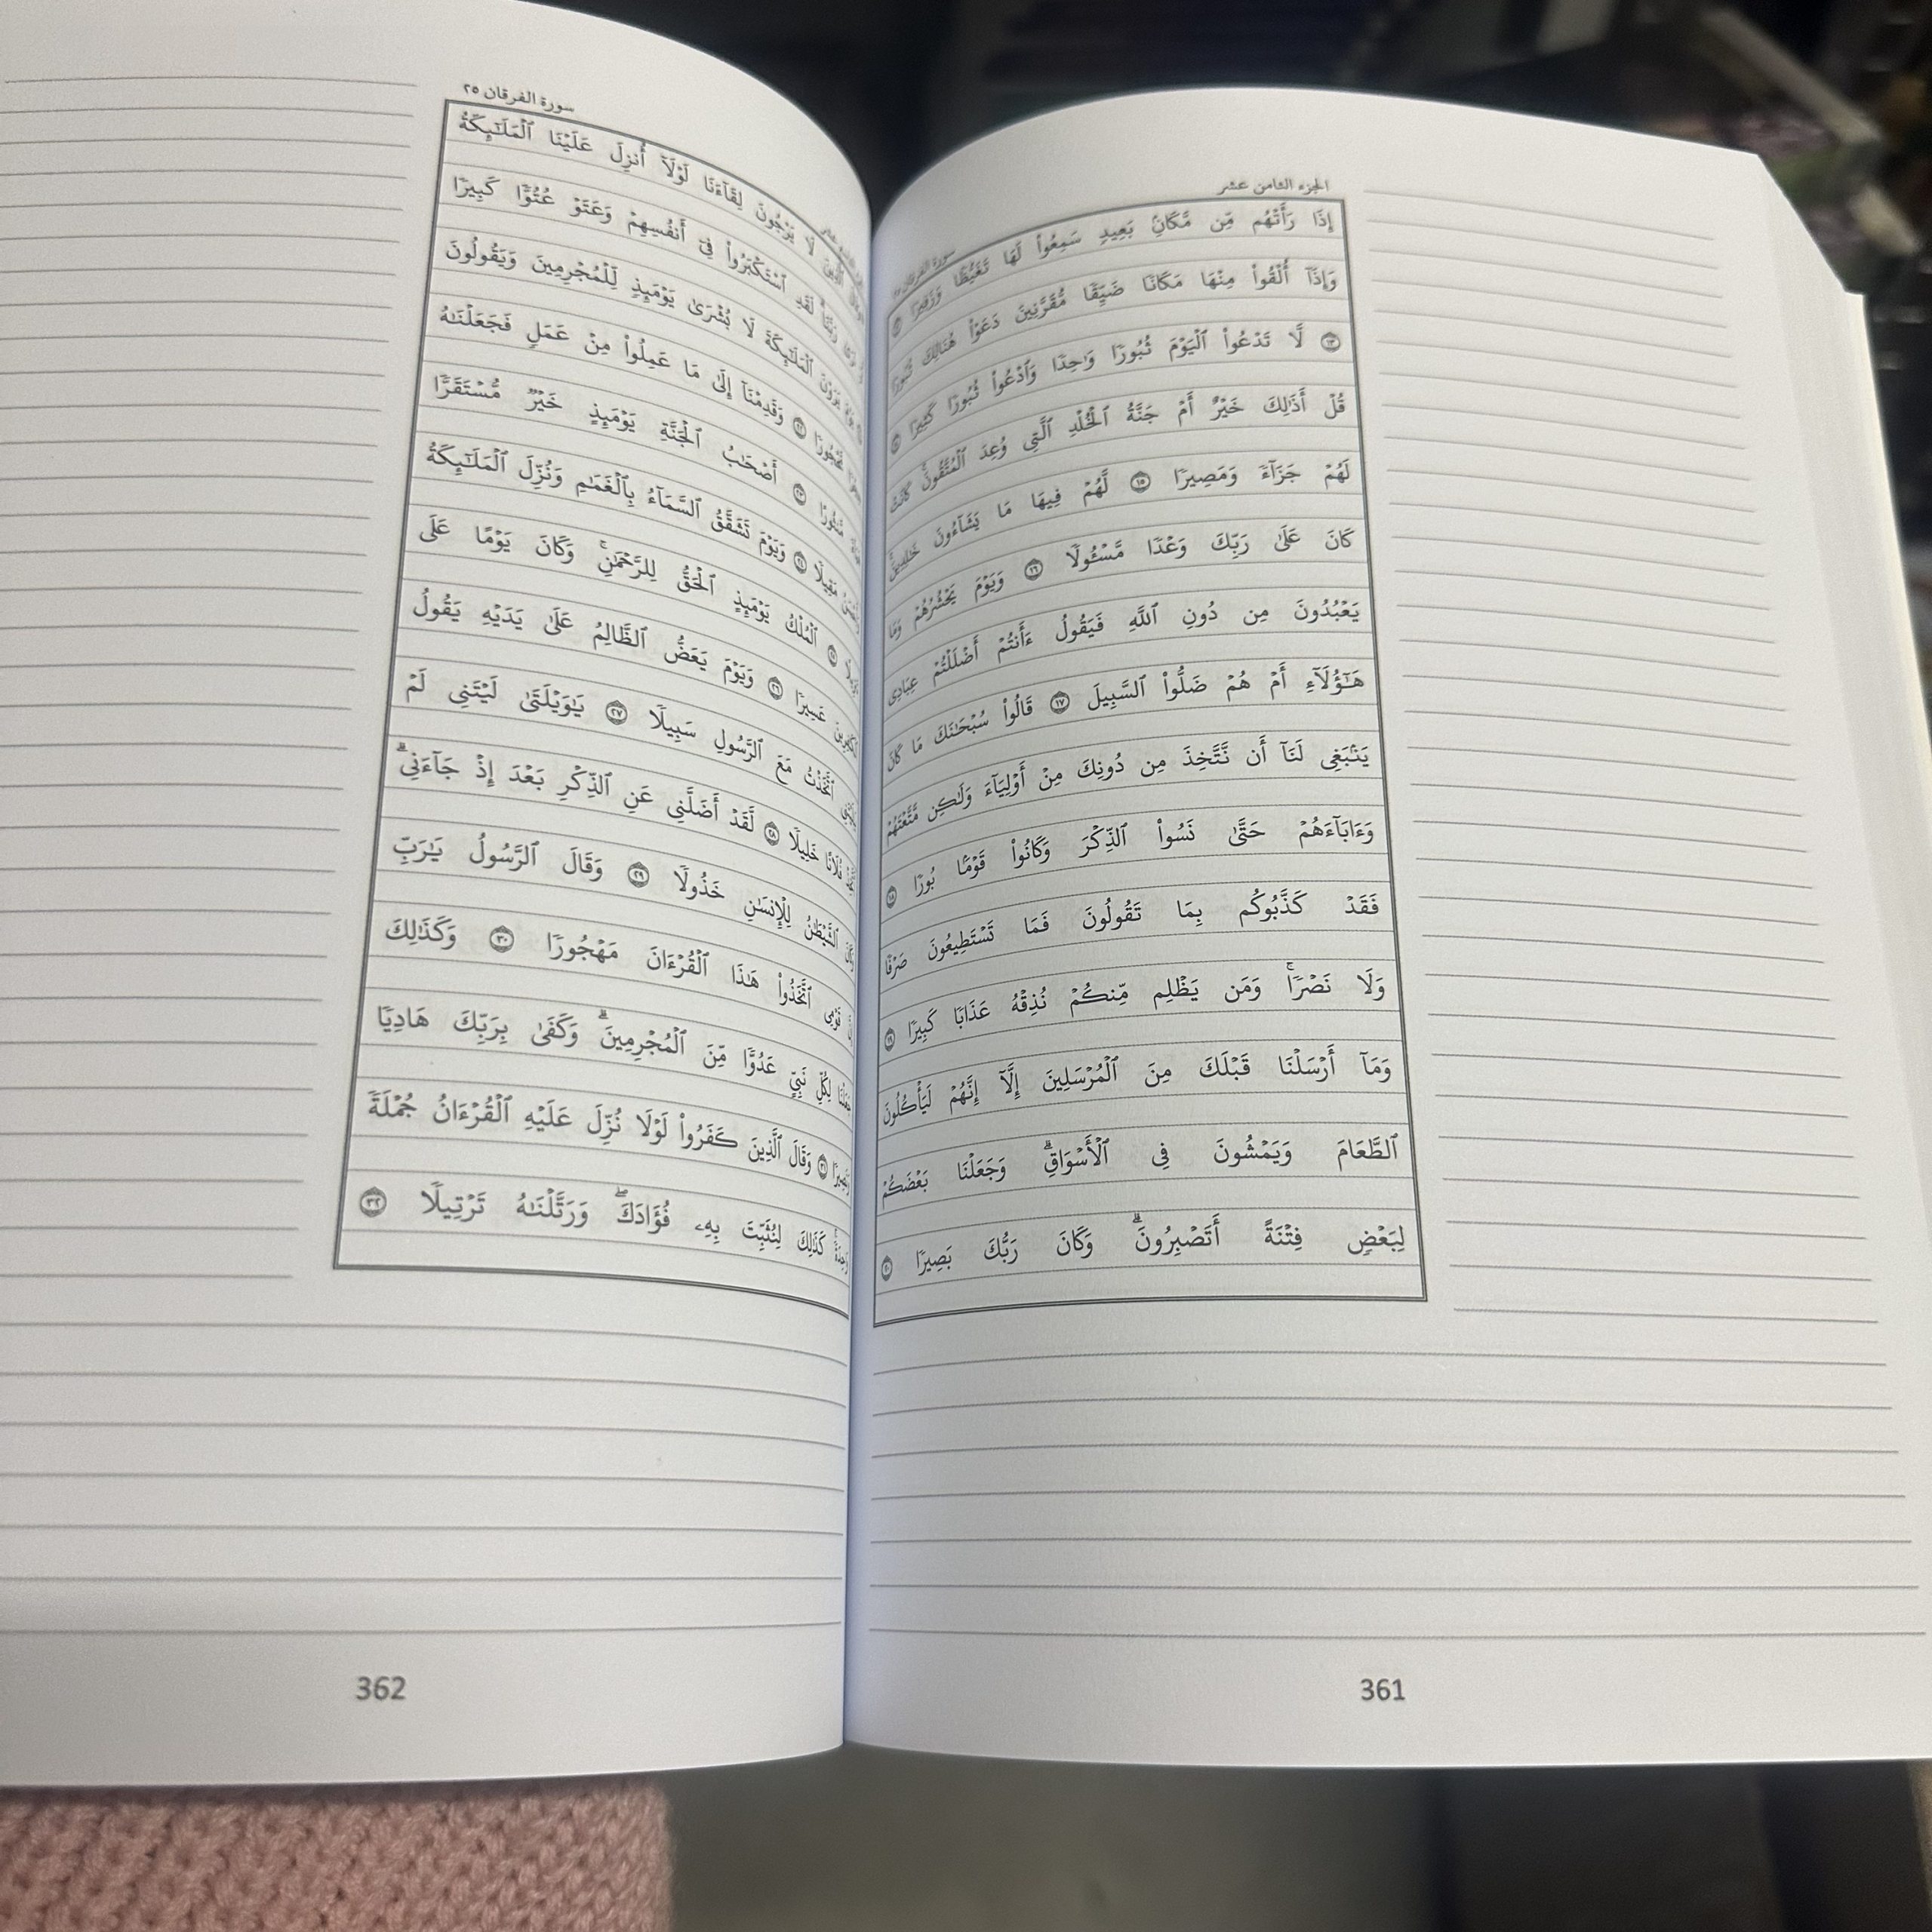 الجزء الثامن عشر
سورة الفرقان
إِذَا رَأَتْهُم مِّن مَّكَانٍۭ بَعِيدٍ سَمِعُوا۟ لَهَا تَغَيُّظًا وَزَفِيرًا
وَإِذَآ أُلْقُوا۟ مِنْهَا مَكَانًا ضَيِّقًا مُّقَرَّنِينَ دَعَوْا۟ هُنَالِكَ ثُبُورًا
١٣ لَّا تَدْعُوا۟ ٱلْيَوْمَ ثُبُورًا وَٰحِدًا وَٱدْعُوا۟ ثُبُورًا كَثِيرًا
قُلْ أَذَٰلِكَ خَيْرٌ أَمْ جَنَّةُ ٱلْخُلْدِ ٱلَّتِى وُعِدَ ٱلْمُتَّقُونَ ۚ كَانَتْ
لَهُمْ جَزَآءً وَمَصِيرًا ١٥ لَّهُمْ فِيهَا مَا يَشَآءُونَ خَٰلِدِينَ ۚ
كَانَ عَلَىٰ رَبِّكَ وَعْدًا مَّسْـُٔولًا ١٦ وَيَوْمَ يَحْشُرُهُمْ وَمَا
يَعْبُدُونَ مِن دُونِ ٱللَّهِ فَيَقُولُ ءَأَنتُمْ أَضْلَلْتُمْ عِبَادِى
هَٰٓؤُلَآءِ أَمْ هُمْ ضَلُّوا۟ ٱلسَّبِيلَ ١٧ قَالُوا۟ سُبْحَٰنَكَ مَا كَانَ
يَنۢبَغِى لَنَآ أَن نَّتَّخِذَ مِن دُونِكَ مِنْ أَوْلِيَآءَ وَلَٰكِن مَّتَّعْتَهُمْ
وَءَابَآءَهُمْ حَتَّىٰ نَسُوا۟ ٱلذِّكْرَ وَكَانُوا۟ قَوْمًۢا بُورًا ١٨
فَقَدْ كَذَّبُوكُم بِمَا تَقُولُونَ فَمَا تَسْتَطِيعُونَ صَرْفًا
وَلَا نَصْرًا ۚ وَمَن يَظْلِم مِّنكُمْ نُذِقْهُ عَذَابًا كَبِيرًا ١٩
وَمَآ أَرْسَلْنَا قَبْلَكَ مِنَ ٱلْمُرْسَلِينَ إِلَّآ إِنَّهُمْ لَيَأْكُلُونَ
ٱلطَّعَامَ وَيَمْشُونَ فِى ٱلْأَسْوَاقِ ۗ وَجَعَلْنَا بَعْضَكُمْ
لِبَعْضٍ فِتْنَةً أَتَصْبِرُونَ ۗ وَكَانَ رَبُّكَ بَصِيرًا ٢٠
361
سورة الفرقان ٢٥
ٱلَّذِينَ لَا يَرْجُونَ لِقَآءَنَا لَوْلَآ أُنزِلَ عَلَيْنَا ٱلْمَلَٰٓئِكَةُ
رَبَّنَا ۗ لَقَدِ ٱسْتَكْبَرُوا۟ فِىٓ أَنفُسِهِمْ وَعَتَوْ عُتُوًّا كَبِيرًا
يَرَوْنَ ٱلْمَلَٰٓئِكَةَ لَا بُشْرَىٰ يَوْمَئِذٍ لِّلْمُجْرِمِينَ وَيَقُولُونَ
مَّحْجُورًا ٢٢ وَقَدِمْنَآ إِلَىٰ مَا عَمِلُوا۟ مِنْ عَمَلٍ فَجَعَلْنَٰهُ
مَّنثُورًا ٢٣ أَصْحَٰبُ ٱلْجَنَّةِ يَوْمَئِذٍ خَيْرٌ مُّسْتَقَرًّا
مَقِيلًا ٢٤ وَيَوْمَ تَشَقَّقُ ٱلسَّمَآءُ بِٱلْغَمَٰمِ وَنُزِّلَ ٱلْمَلَٰٓئِكَةُ
٢٥ ٱلْمُلْكُ يَوْمَئِذٍ ٱلْحَقُّ لِلرَّحْمَٰنِ ۚ وَكَانَ يَوْمًا عَلَى
عَسِيرًا ٢٦ وَيَوْمَ يَعَضُّ ٱلظَّالِمُ عَلَىٰ يَدَيْهِ يَقُولُ
ٱتَّخَذْتُ مَعَ ٱلرَّسُولِ سَبِيلًا ٢٧ يَٰوَيْلَتَىٰ لَيْتَنِى لَمْ
فُلَانًا خَلِيلًا ٢٨ لَّقَدْ أَضَلَّنِى عَنِ ٱلذِّكْرِ بَعْدَ إِذْ جَآءَنِى ۗ
ٱلشَّيْطَٰنُ لِلْإِنسَٰنِ خَذُولًا ٢٩ وَقَالَ ٱلرَّسُولُ يَٰرَبِّ
قَوْمِى ٱتَّخَذُوا۟ هَٰذَا ٱلْقُرْءَانَ مَهْجُورًا ٣٠ وَكَذَٰلِكَ
جَعَلْنَا لِكُلِّ نَبِىٍّ عَدُوًّا مِّنَ ٱلْمُجْرِمِينَ ۗ وَكَفَىٰ بِرَبِّكَ هَادِيًا
وَنَصِيرًا ٣١ وَقَالَ ٱلَّذِينَ كَفَرُوا۟ لَوْلَا نُزِّلَ عَلَيْهِ ٱلْقُرْءَانُ جُمْلَةً
وَٰحِدَةً ۚ كَذَٰلِكَ لِنُثَبِّتَ بِهِۦ فُؤَادَكَ ۖ وَرَتَّلْنَٰهُ تَرْتِيلًا ٣٢
362